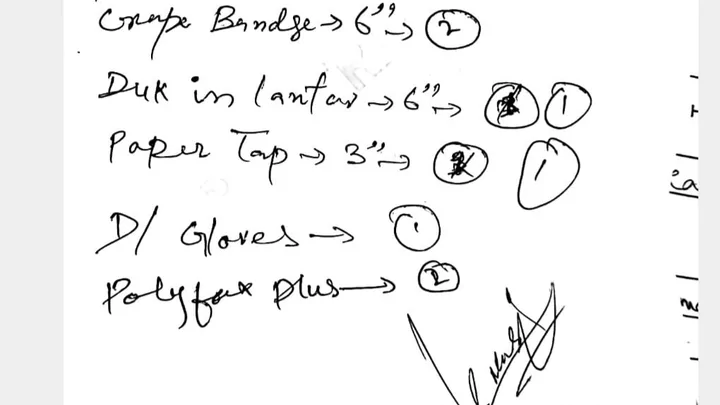 Crape Bandge → 6" → 2
Duk in lantar → 6" → 1
Paper Tap → 3" → 1
D/ Gloves → 1
Polyfax plus → 2